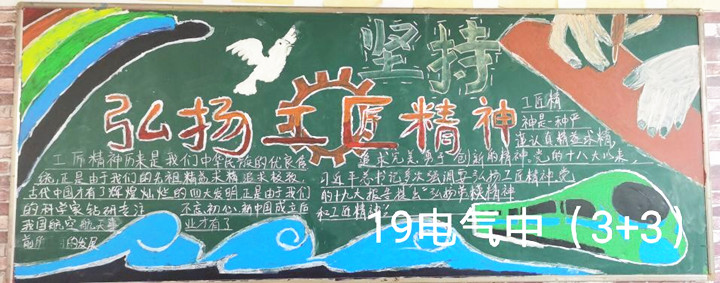 坚持
弘扬工匠精神
工匠精神历来是我们中华民族的优良传
统,正是由于我们的名祖精益求精追求极致,
古代中国才有了辉煌灿烂的四大发明正是由于我们
的科学家钻研专注 不忘初心,新中国成立后
我国航空航天事 业才有了
的发展
工匠精
神是一种严
谨认真精益求精,
追求完美勇于创新的精神,党的十八大以来,
习近平总书记多次强调学弘扬工匠精神党
的十九大报告提出"弘扬劳模精神
和工匠精神"
19电气中(3+3)